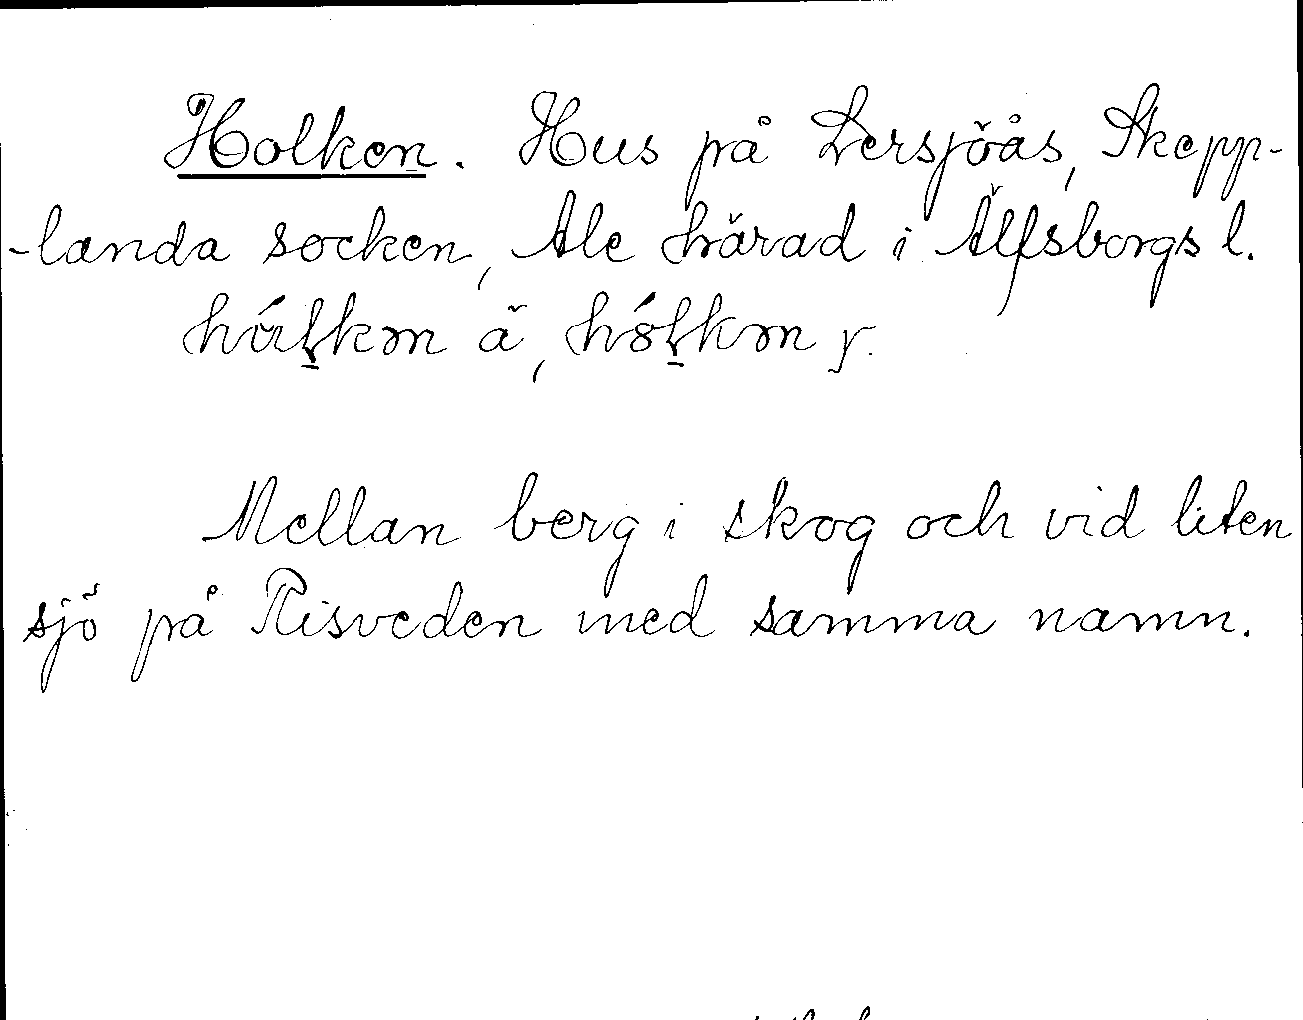 Holken. Hus på Lersjöås, Skepp-
-landa socken, Ale härad i Älfsborgs l.
ä, y.
Mellan berg i skog och vid liten
sjö på Risveden med samma namn.